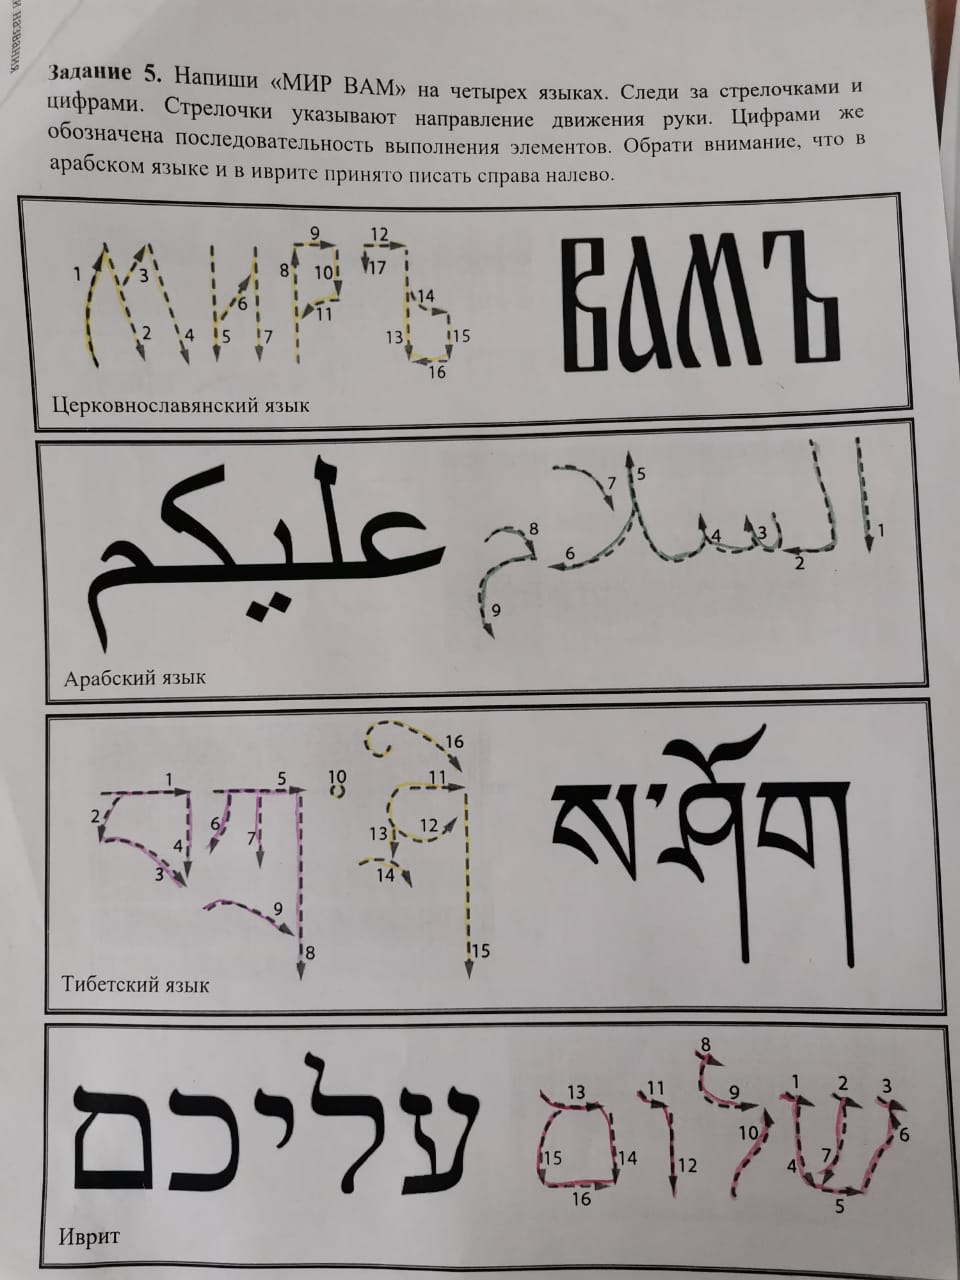 и названия
Задание 5. Напиши «МИР ВАМ» на четырех языках. Следи за стрелочками и
цифрами. Стрелочки указывают направление движения руки. Цифрами же
обозначена последовательность выполнения элементов. Обрати внимание, что в
арабском языке и в иврите принято писать справа налево.
МИРЪ ВАМЪ
1 2 3 4 5 6 7 8 9 10 11 12 13 14 15 16 17
Церковнославянский язык
السلام عليكم
1 2 3 4 5 6 7 8 9
Арабский язык
1 2 3 4 5 6 7 8 9 10 11 12 13 14 15 16
Тибетский язык
שלום עליכם
1 2 3 4 5 6 7 8 9 10 11 12 13 14 15 16
Иврит